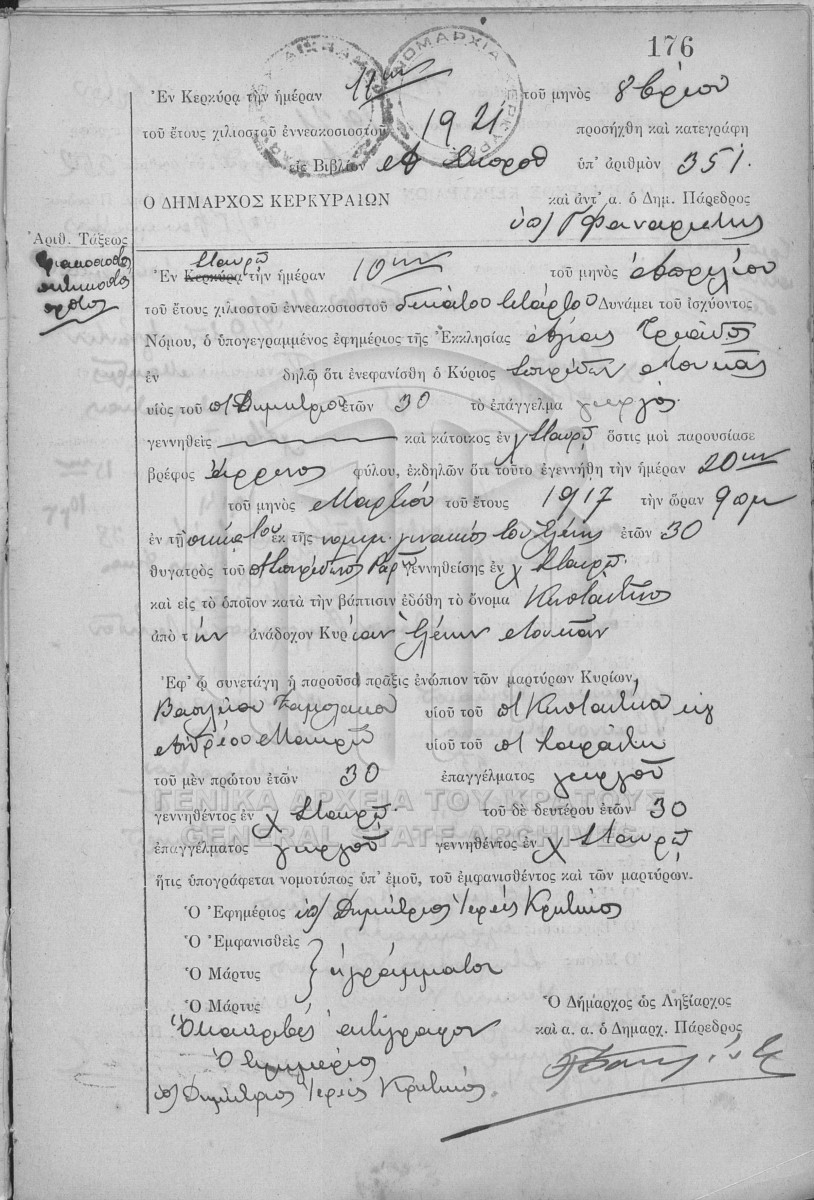 176
ΝΟΜΑΡΧΙΑ ΚΕΡΚΥΡ
Ἐν Κερκύρᾳ τὴν ἡμέραν 17ην τοῦ μηνὸς 8βρίου
τοῦ ἔτους χιλιοστοῦ ἐννεακοσιοστοῦ 1921 προσήχθη καὶ κατεγράφη
εἰς Βιβλίον Α Σποραδ ὑπ' ἀριθμὸν 351.
Ο ΔΗΜΑΡΧΟΣ ΚΕΡΚΥΡΑΙΩΝ καὶ ἀντ' α. ὁ Δημ. Πάρεδρος
Ἀριθ. Τάξεως
τριακοσιοστὸς
πεντηκοστὸς
πρῶτος
Σταυρῷ
Ἐν Κερκύρᾳ τὴν ἡμέραν 10ην τοῦ μηνὸς Ἀπριλίου
τοῦ ἔτους χιλιοστοῦ ἐννεακοσιοστοῦ δεκάτου Δυνάμει τοῦ ἰσχύοντος
Νόμου, ὁ ὑπογεγραμμένος ἐφημέριος τῆς Ἐκκλησίας Ἁγίας Τριάδος
ἐν δηλῶ ὅτι ἐνεφανίσθη ὁ Κύριος Σπυρίδων Λουκᾶς
υἱὸς τοῦ π Δημητρίου ἐτῶν 30 τὸ ἐπάγγελμα γεωργὸς
γεννηθεὶς καὶ κάτοικος ἐν χ Σταυρῷ ὅστις μοὶ παρουσίασε
βρέφος ἄρρενος φύλου, ἐκδηλῶν ὅτι τοῦτο ἐγεννήθη τὴν ἡμέραν 20ην
τοῦ μηνὸς Μαρτίου τοῦ ἔτους 1917 τὴν ὥραν 9 πμ
ἐν τῇ οἰκίᾳ του ἐκ τῆς νομίμ. γυναικός του Ἑλένης ἐτῶν 30
θυγατρὸς τοῦ π Σπυρίδωνος γεννηθείσης ἐν χ Σταυρῷ
καὶ εἰς τὸ ὁποῖον κατὰ τὴν βάπτισιν ἐδόθη τὸ ὄνομα Κωσταντῖνος
ἀπὸ τὴν ἀνάδοχον Κυρίαν Ἑλένην Λουκᾶν
Ἐφ' ᾧ συνετάγη ἡ παροῦσα πρᾶξις ἐνώπιον τῶν μαρτύρων Κυρίων,
Βασιλείου υἱοῦ τοῦ π Κωσταντίνου καὶ
Ἀνδρέου Μακρῆ υἱοῦ τοῦ π Σαράντη
τοῦ μὲν πρώτου ἐτῶν 30 ἐπαγγέλματος γεωργοῦ
ΓΕΝΙΚΑ ΑΡΧΕΙΑ ΤΟΥ ΚΡΑΤΟΥΣ
γεννηθέντος ἐν χ Σταυρῷ τοῦ δὲ δευτέρου ἐτῶν 30
GENERAL STATE ARCHIVES
ἐπαγγέλματος γεωργοῦ γεννηθέντος ἐν χ Σταυρῷ
ἥτις ὑπογράφεται νομοτύπως ὑπ' ἐμοῦ, τοῦ ἐμφανισθέντος καὶ τῶν μαρτύρων.
Ὁ Ἐφημέριος υπ/ Δημήτριος Ἱερεὺς Κρητικὸς
Ὁ Ἐμφανισθεὶς
Ὁ Μάρτυς ἀγράμματοι
Ὁ Μάρτυς
Ὁ Δήμαρχος ὡς Ληξίαρχος
Ἀκριβὲς ἀντίγραφον καὶ α. α. ὁ Δημαρχ. Πάρεδρος
Ὁ Ἐφημέριος
υπ/ Δημήτριος Ἱερεὺς Κρητικός.